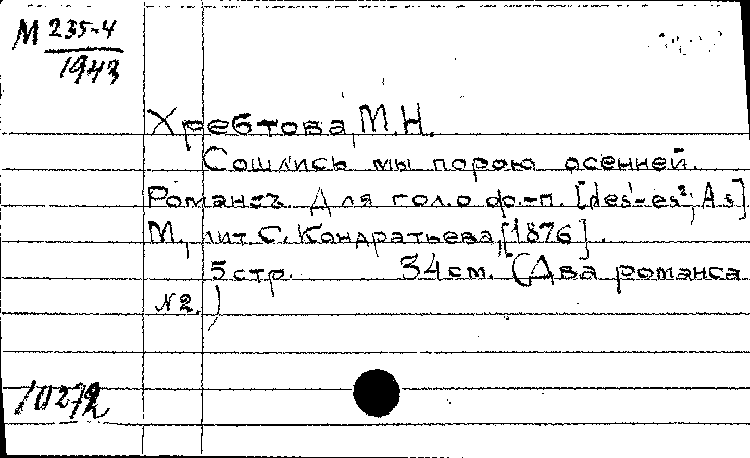 М 235-4
1943
Хребтова, М.Н.
Сошлись мы порою осенней.
Романсъ. Для гол. с ф.-п. [des¹-es²; As]
М., лит. С. Кондратьева, [1876].
5 стр. 34 см. (Два романса
№ 2.)
10272